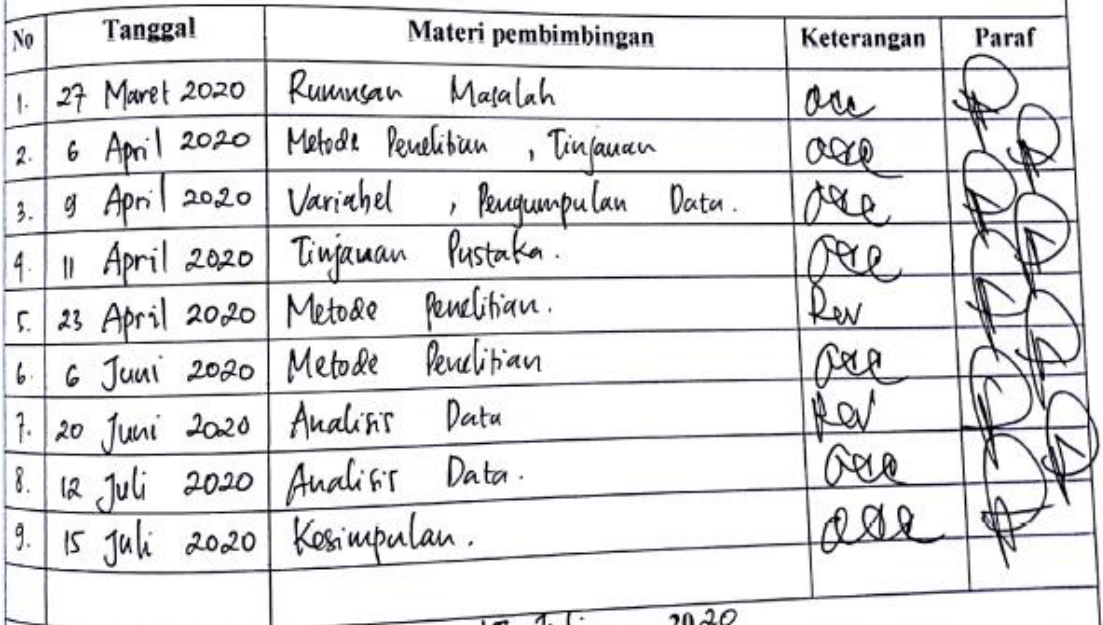 No Tanggal Materi pembimbingan Keterangan Paraf
1. 27 Maret 2020 Rumusan Masalah acc
2. 6 April 2020 Metode Penelitian , Tinjauan acc
3. 9 April 2020 Variabel , Pengumpulan Data. acc
4. 11 April 2020 Tinjauan Pustaka. acc
5. 23 April 2020 Metode Penelitian. Rev
6. 6 Juni 2020 Metode Penelitian acc
7. 20 Juni 2020 Analisis Data Rev
8. 12 Juli 2020 Analisis Data. acc
9. 15 Juli 2020 Kesimpulan. acc
2020